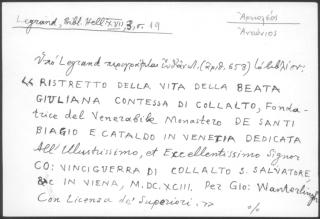 Legrand, Bibl. Hell. XVII, 3, σ. 19
Ἀντώνιος
Ὑπὸ Legrand περιγράφεται (ἀριθ. 658) τὸ βιβλίον:
« RISTRETTO DELLA VITA DELLA BEATA
GIULIANA CONTESSA DI COLLALTO, Fonda-
trice del Venerabile Monastero DE SANTI
BIAGIO E CATALDO IN VENETIA DEDICATA
All'Illustrissimo, et Excellentissimo Signor
CO: VINCIGUERRA DI COLLALTO S. SALVATORE
&c IN VIENA, M.DC.XCIII. Per Gio:
Con Licenza de' Superiori. »
%